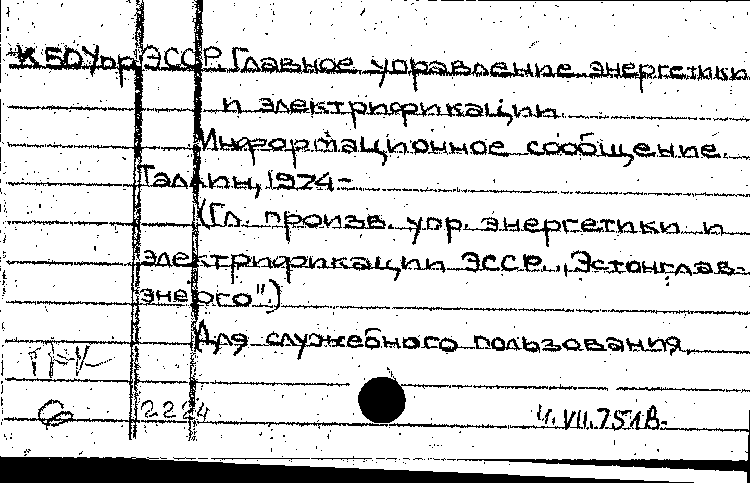 К БОУэр ЭССР. Главное управление энергетики
и электрификации.
Информационное сообщение.
Таллин, 1974-
(Гл. произв. упр. энергетики и
электрификации ЭССР. „Эстонглав-
энерго".)
Для служебного пользования.
2224